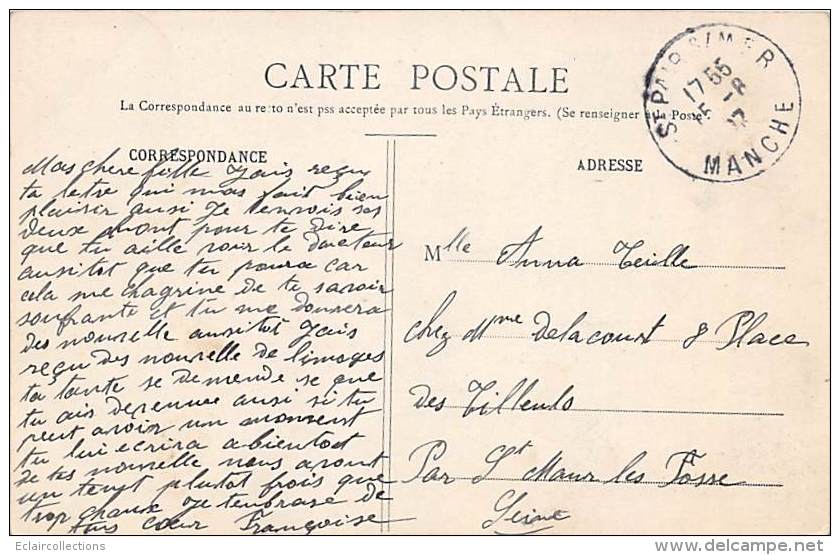 CARTE POSTALE
La Correspondance au recto n'est pas acceptée par tous les Pays Étrangers. (Se renseigner à la Poste).
ST PAIR S/MER
17 55
MANCHE
CORRESPONDANCE
Mas chere fille Jais reçu
ta letre qui mas fait bien
plaisir ausi Je tenvois ses
deux mont pour te dire
que tu aille voir le docteur
ausitot que tu poura car
cela me chagrine de te savoir
soufrante et tu me donnera
des nouvelle ausitot Jais
reçu des nouvelle de limoges
ta tante se demende se que
tu ais devenue ausi si tu
peut avoir un moment
tu lui ecrira abientot
de tes nouvelle nous avont
un tempt plutot frois que
trop chaux Je tenbrase de
tous cœur Françoise
ADRESSE
Mlle Anna Teille
chez Mme Delacourt 8 Place
des Tilleuls
Par St Maur les Fosse
Seine
Eclaircollections
www.delcampe.net